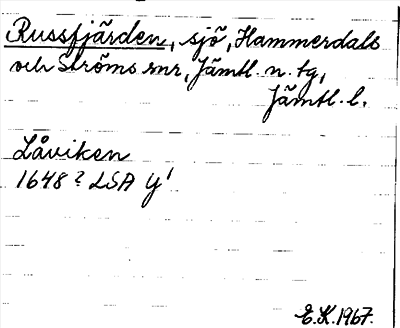 Russfjärden, sjö, Hammerdals
och Ströms snr, Jämtl. n. tg,
Jämtl. l.
Låviken
1648? LSA Y¹
E.K. 1967.